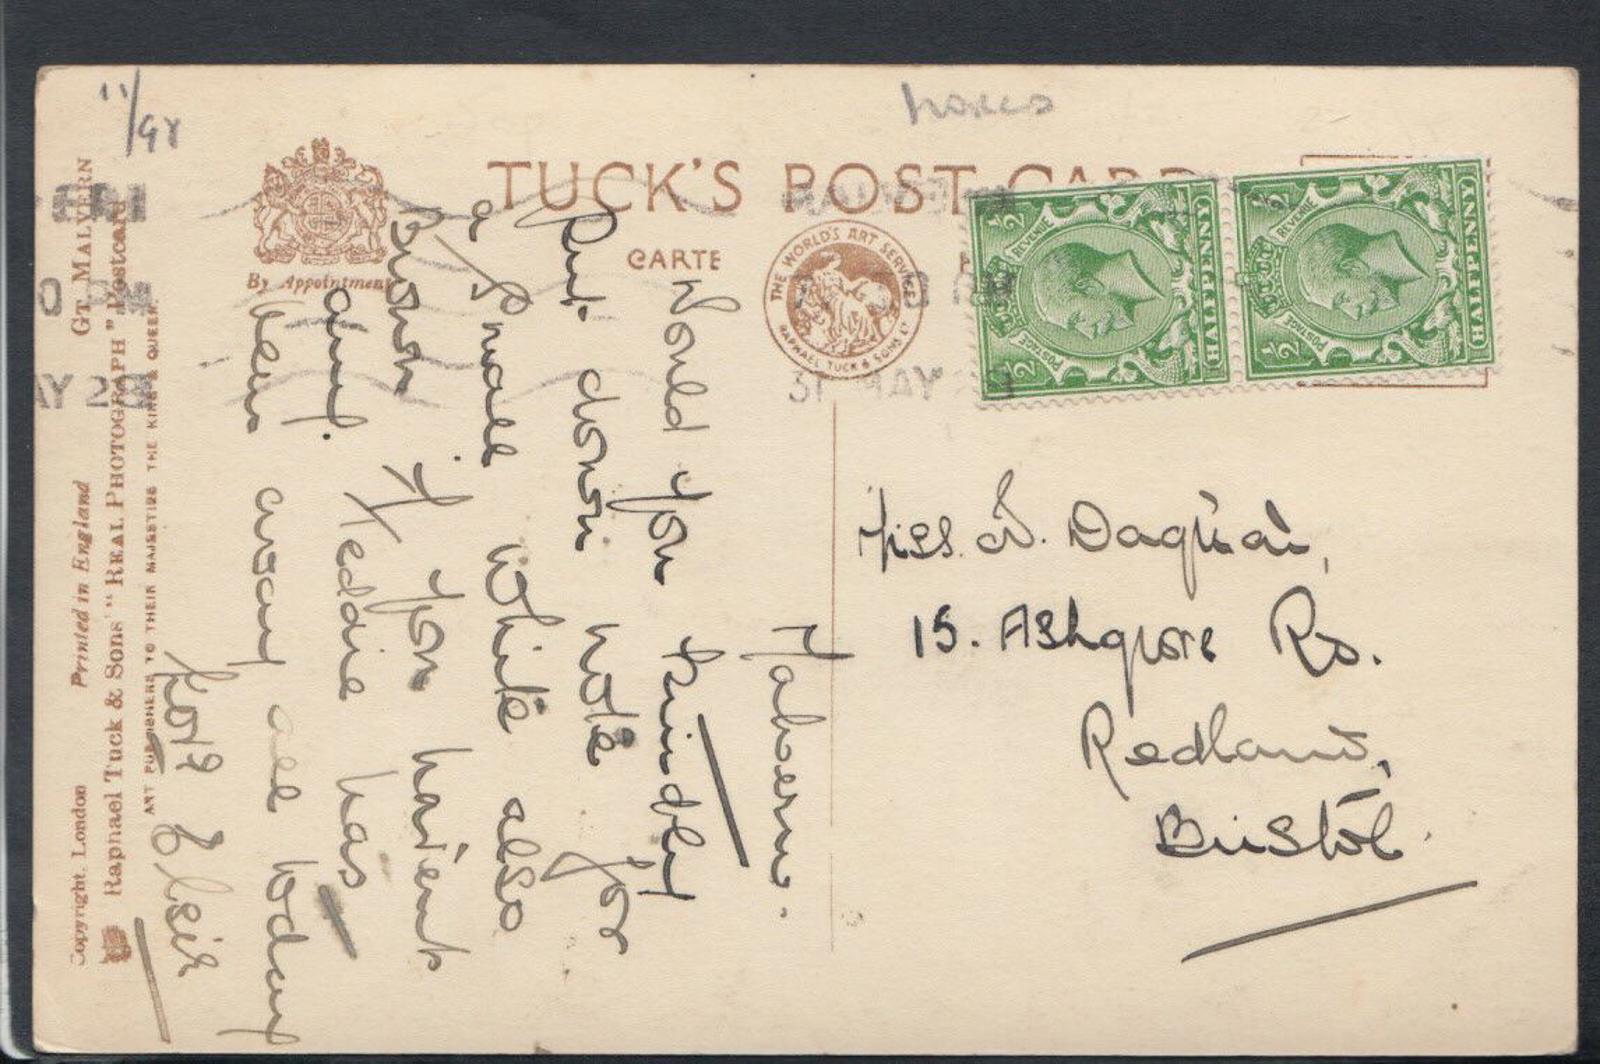 11/98
TUCK'S POST CARD
By Appointment
CARTE
THE WORLD'S ART SERVICE
RAPHAEL TUCK & SONS LTD
31 MAY
½ REVENUE
HALFPENNY
POSTAGE ½
½ REVENUE
HALFPENNY
POSTAGE ½
GT. MALVERN
Copyright. London Printed in England
Raphael Tuck & Sons' "REAL PHOTOGRAPH" Postcard
ART PUBLISHERS TO THEIR MAJESTIES THE KING & QUEEN.
Malvern.
Would you kindly
Put down note for
a small white also
Brown if you havent
any. Teddie has
been away all today
Love Elsie
Miss
15. Ashgrove Rd.
Redland,
Bristol.